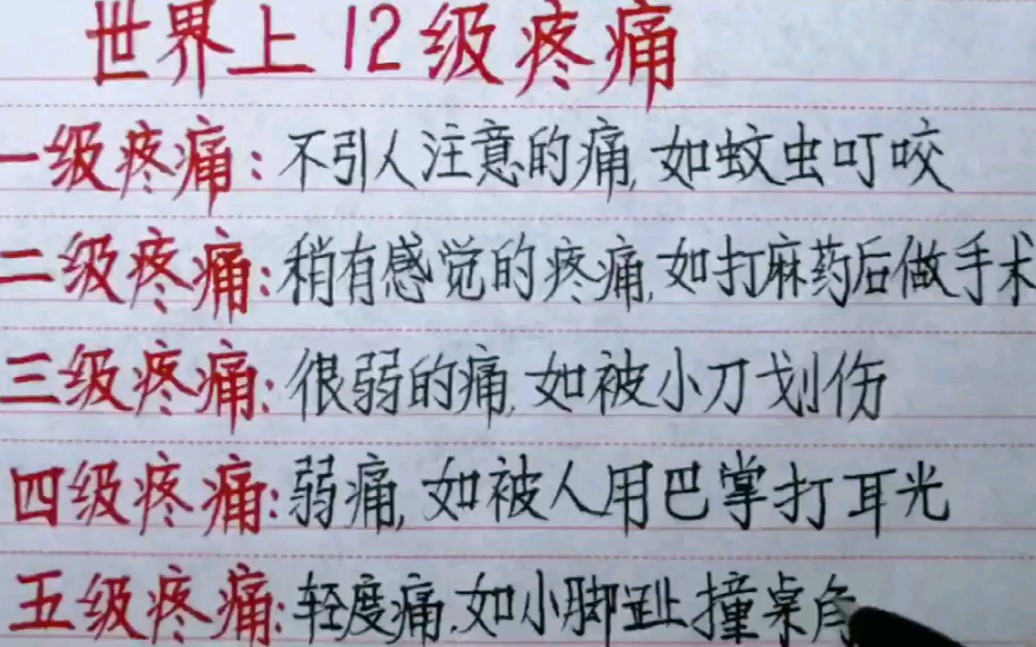 世界上12级疼痛
一级疼痛:不引人注意的痛,如蚊虫叮咬
二级疼痛:稍有感觉的疼痛,如打麻药后做手术
三级疼痛:很弱的痛,如被小刀划伤
四级疼痛:弱痛,如被人用巴掌打耳光
五级疼痛:轻度痛,如小脚趾撞桌角